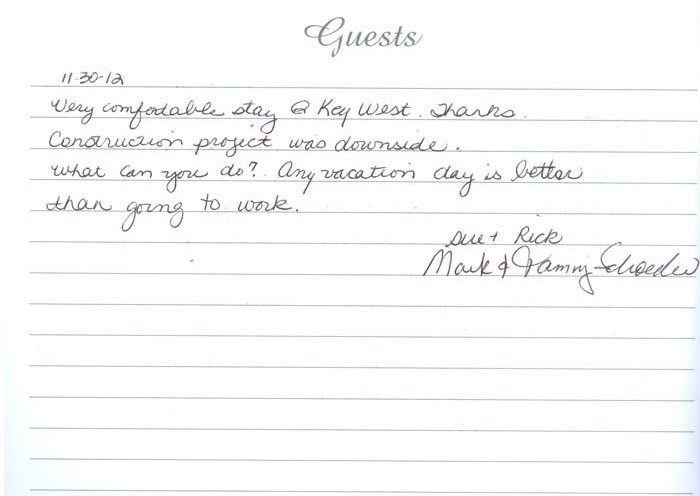 Guests
11-30-12
Very comfortable stay @ Key West. Thanks.
Construction project was downside.
What can you do? Any vacation day is better
than going to work.
Sue + Rick
Mark & Tammy Schroeder